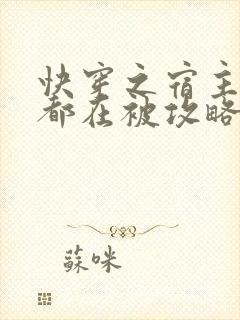 快穿之宿主
都在被攻略
蘇咪